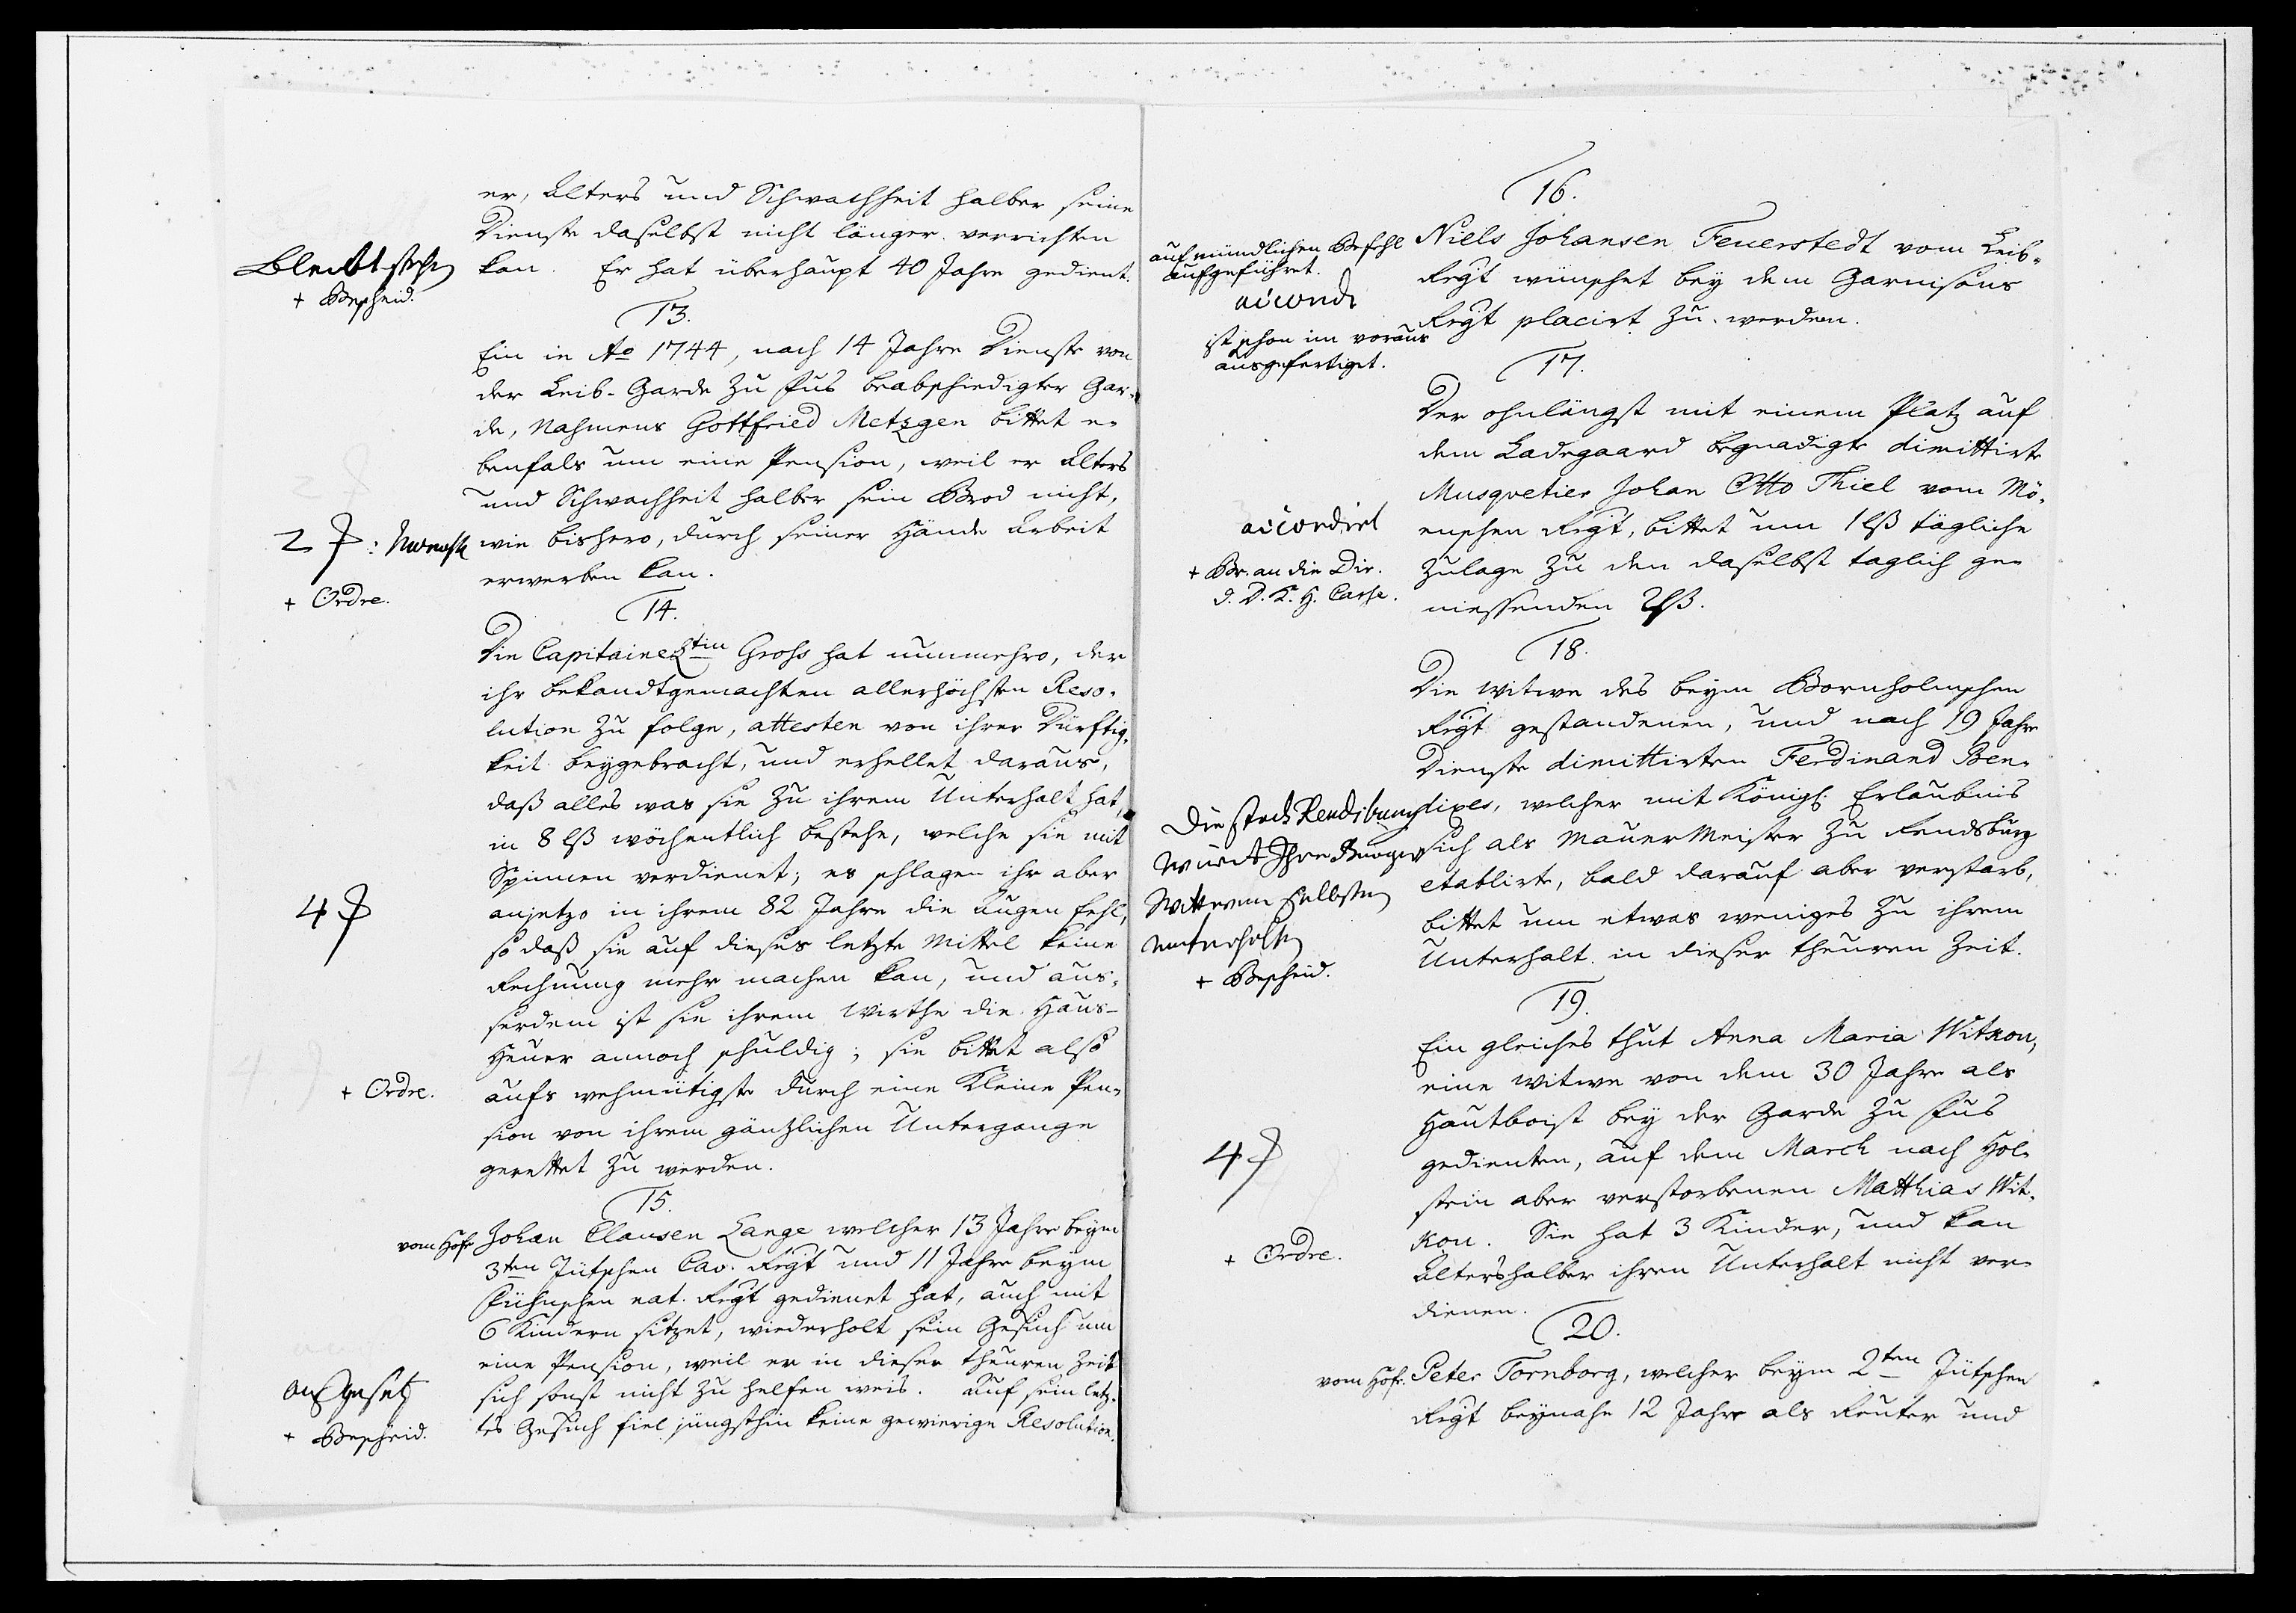 er, Alters und Schwachheit halber seine
Dienste daselbst nicht länger verrichten
kan. Er hat überhaupt 40 Jahre gedient.
Bleibt stehen
+ Bescheid.
13.
Ein in Ao 1744, nach 14 Jahre Dienste von
der Leib-Garde zu Fus beabschiedigter Gar-
de, Nahmens Gottfried Metzgen bittet e-
benfals um eine Pension, weil er Alters
und Schwachheit halber sein Brod nicht,
wie bishero, durch seiner Hände Arbeit
erwerben kan.
2
+ Ordre.
14.
Die Capitaine Gross hat nunmehro, der
ihr bekandtgemachten allerhöchsten Reso-
lution zu folge, attesten von ihrer Dürftig-
keit beygebracht, und erhellet daraus,
daß alles was sie zu ihrem Unterhalt hat,
in 8 lß wöchentlich bestehe, welche sie mit
Spinnen verdienet; es schlagen ihr aber
anjetzo in ihrem 82 Jahre die Augen fehl,
so daß sie auf dieses letzte Mittel keine
Rechnung mehr machen kan, und aus-
serdem ist sie ihrem Wirthe die Haus-
Heuer annoch schuldig; sie bittet also
aufs wehmütigste durch eine kleine Pen-
sion von ihrem gäntzlichen Untergange
gerettet zu werden.
4
+ Ordre.
15.
vom Hofe
Johan Clausen Lange welcher 13 Jahre beym
3ten Jütschen Cav. Regt und 11 Jahre beym
Fühnschen nat. Regt gedienet hat, auch mit
6 Kindern sitzet, wiederholt sein Gesuch um
eine Pension, weil er in dieser theuren Zeit
sich sonst nicht zu helfen weis. Auf sein letz-
tes Gesuch fiel jüngsthin keine gewierige Resolution.
ausgesetz
+ Bescheid.
16.
Niels Johansen Feuerstedt vom Leib-
Regt wünschet bey dem Garnisons
Regt placirt zu werden.
auf mündlichen Befehl
aufgeführet.
accordi
ist schon im voraus
ausgefertiget.
17.
Der ohnlängst mit einem Platz auf
dem Ladegaard begnadigte dimittirte
Musqvetier Johan Otto Thiel vom Mö-
enschen Regt, bittet um 1 lß tägliche
Zulage zu den daselbst täglich ge-
niessenden 2 lß.
accordirt
+ Br. an die Dir.
d. D. K. H. Casse.
18.
Die Witwe des beym Bornholmschen
Regt gestandenen, und nach 19 Jahre
Dienste dimittirten Ferdinand Ben-
dixes, welcher mit Königl. Erlaubnis
sich als Mauer Meister zu Rendsburg
etablirte, bald darauf aber verstarb,
bittet um etwas weniges zu ihrem
Unterhalt in dieser theuren Zeit.
Die stadt Rendsburg
wird Ihre Burger
Wittwen selbsten
unterhalten
+ Bescheid.
19.
Ein gleiches thut Anna Maria Witkou,
eine Witwe von dem 30 Jahre als
Hautboist bey der Garde zu Fus
gedienten, auf dem March nach Hol-
stein aber verstorbenen Matthias Wit-
kou. Sie hat 3 Kinder, und kan
Altershalber ihren Unterhalt nicht ver-
dienen.
4
+ Ordre.
20.
vom Hofe.
Peter Tornborg, welcher beym 2ten Jütschen
Regt beynahe 12 Jahre als Reuter und